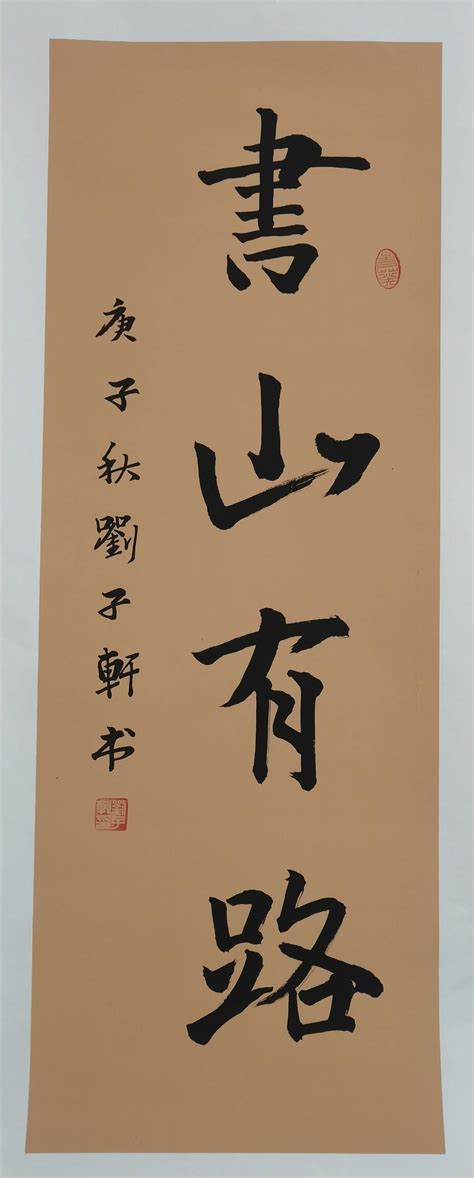 書山有路
庚子秋劉子軒书